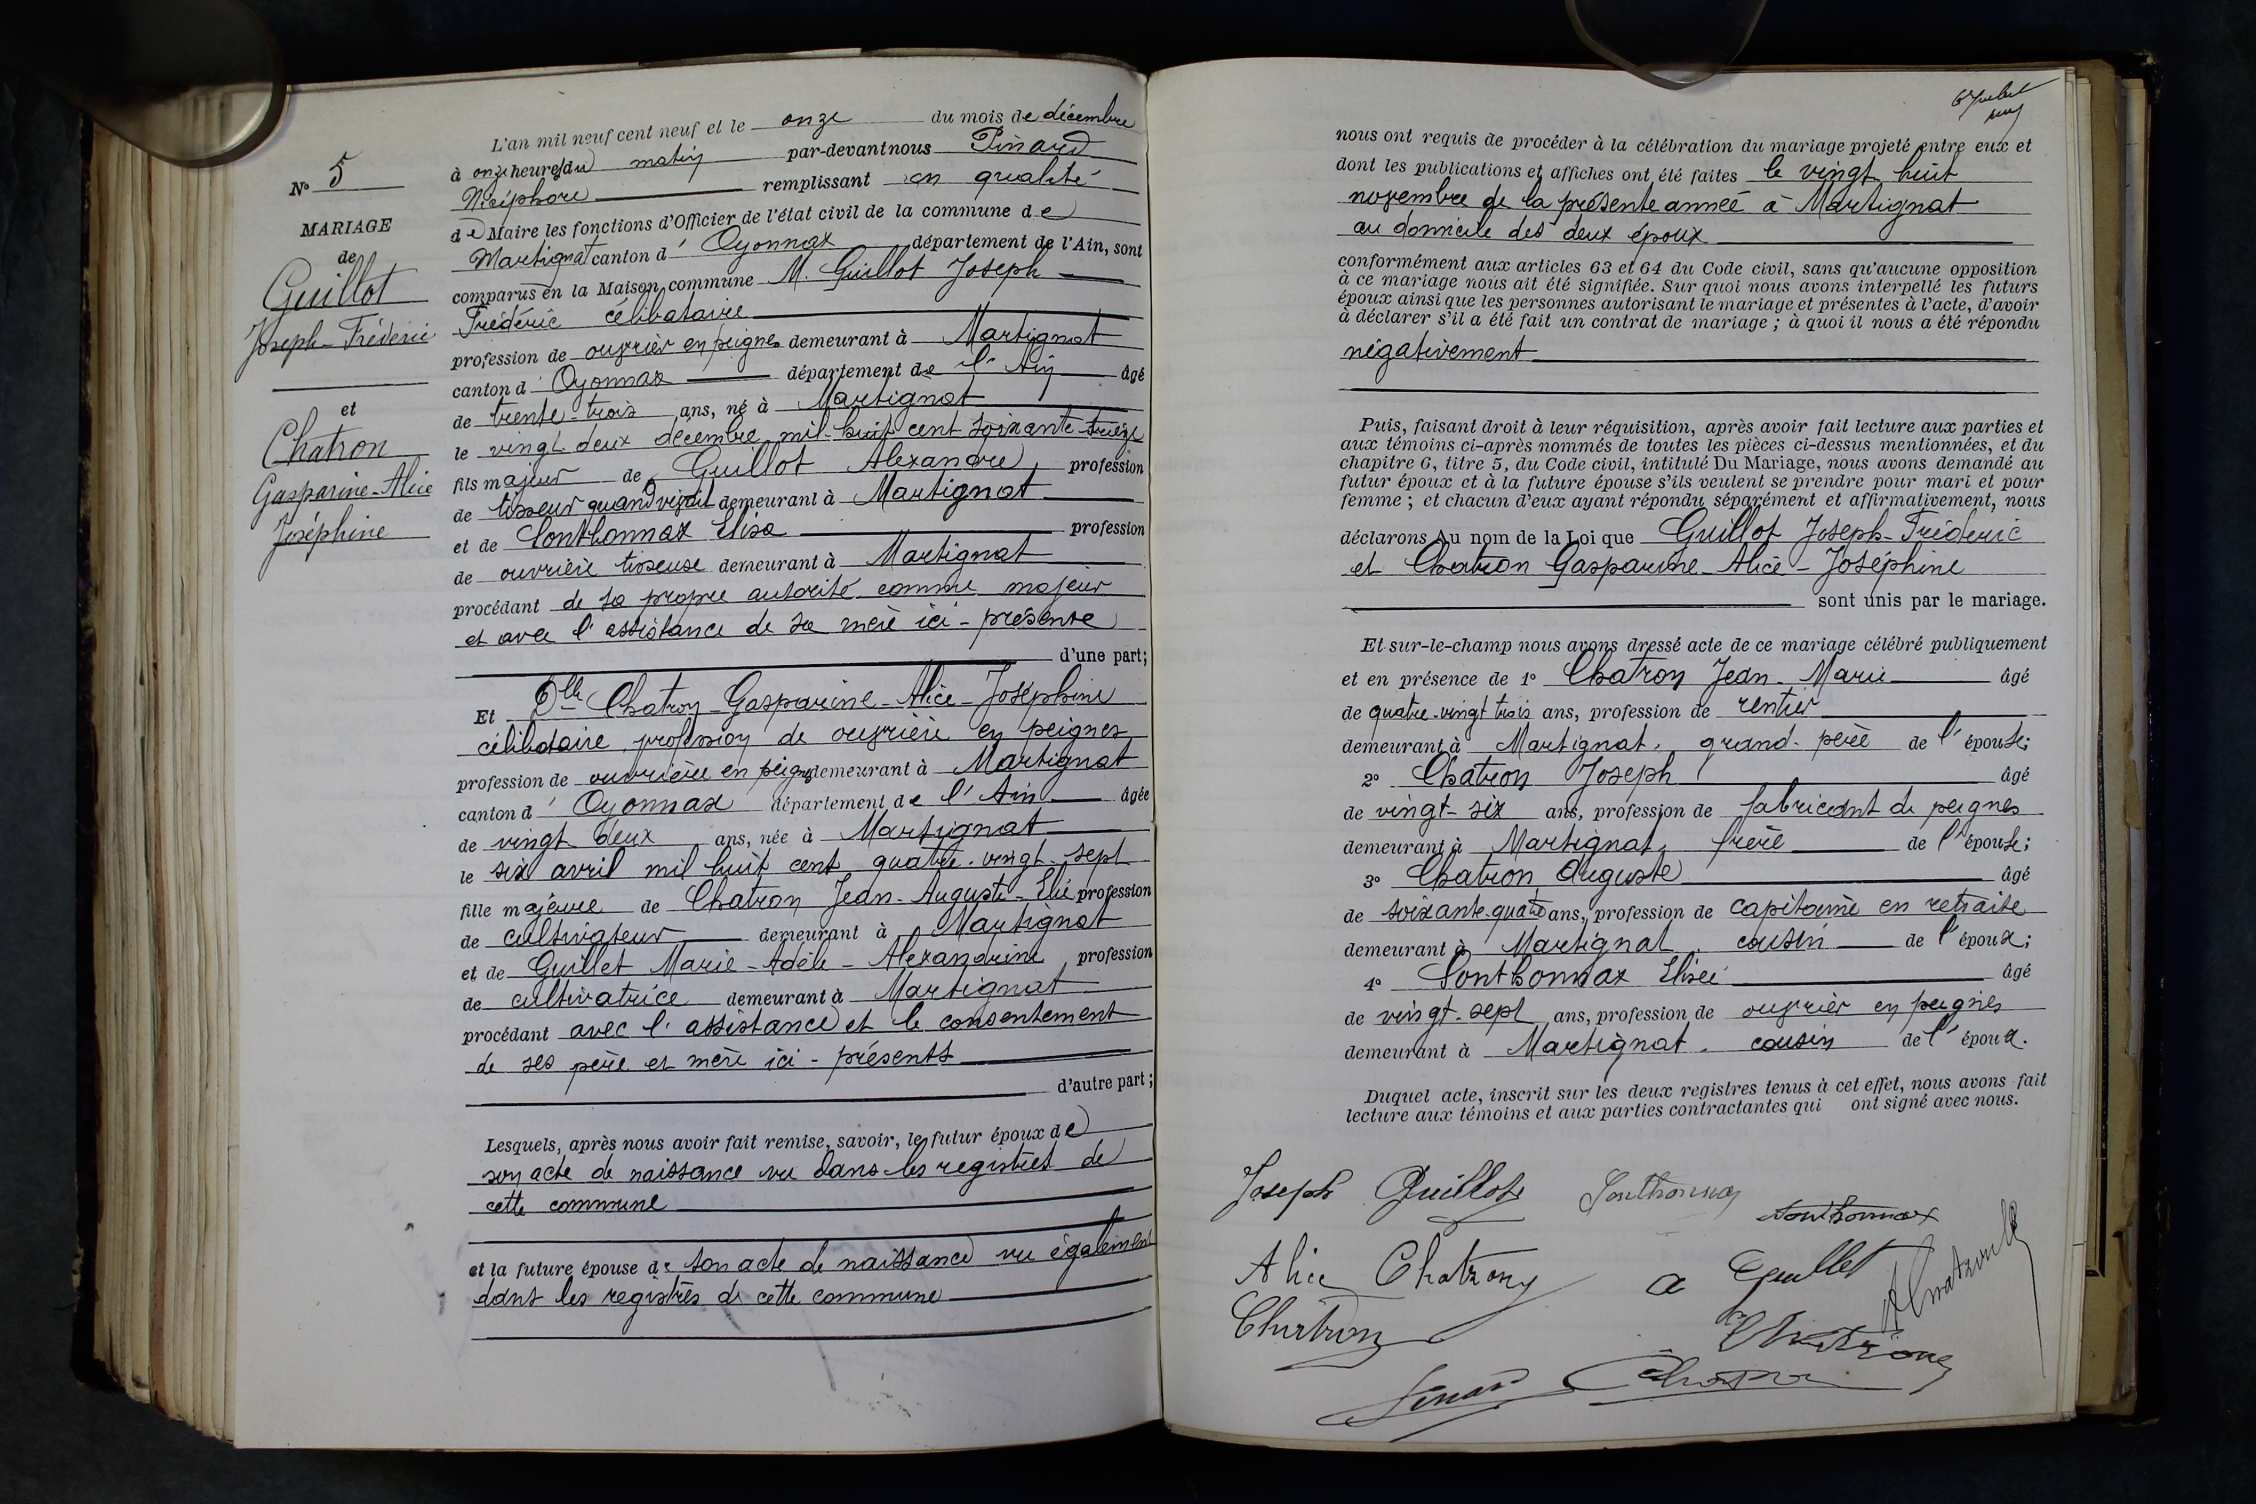 L'an mil neuf cent neuf et le onze du mois de décembre
à onze heures du matin par-devant nous Pinard
Nicéphore remplissant en qualité
de Maire les fonctions d'Officier de l'état civil de la commune de
Martignat canton d' Oyonnax département de l'Ain, sont
comparus en la Maison commune M. Guillot Joseph
Frédéric célibataire
profession de ouvrier en peignes demeurant à Martignat
canton d' Oyonnax département de l'Ain âgé
de trente-trois ans, né à Martignat
le vingt deux décembre mil-huit cent soixante-treize
fils majeur de Guillot Alexandre profession
de tisseur quand vivait demeurant à Martignat
et de Sonthonnax Elisa profession
de ouvrière tisseuse demeurant à Martignat
procédant de sa propre autorité comme majeur
et avec l'assistance de sa mère ici-présente
d'une part;
Et Dlle Chatron-Gasparine-Alice-Joséphine
célibataire profession de ouvrière en peignes
profession de ouvrière en peignes demeurant à Martignat
canton d' Oyonnax département de l'Ain âgée
de vingt deux ans, née à Martignat
le six avril mil huit cent quatre-vingt-sept
fille majeure de Chatron Jean-Auguste-Elie profession
de cultivateur demeurant à Martignat
et de Guillet Marie-Adèle-Alexandrine profession
de cultivatrice demeurant à Martignat
procédant avec l'assistance et le consentement
de ses père et mère ici-présents
d'autre part;
Lesquels, après nous avoir fait remise, savoir, le futur époux de
son acte de naissance vu dans les registres de
cette commune
et la future épouse de son acte de naissance vu également
dans les registres de cette commune
N° 5
MARIAGE
de
Guillot
Joseph-Fréderic
et
Chatron
Gasparine-Alice
Joséphine
nous ont requis de procéder à la célébration du mariage projeté entre eux et
dont les publications et affiches ont été faites le vingt huit
novembre de la présente année à Martignat
au domicile des deux époux
conformément aux articles 63 et 64 du Code civil, sans qu'aucune opposition
à ce mariage nous ait été signifiée. Sur quoi nous avons interpellé les futurs
époux ainsi que les personnes autorisant le mariage et présentes à l'acte, d'avoir
à déclarer s'il a été fait un contrat de mariage ; à quoi il nous a été répondu
négativement
Puis, faisant droit à leur réquisition, après avoir fait lecture aux parties et
aux témoins ci-après nommés de toutes les pièces ci-dessus mentionnées, et du
chapitre 6, titre 5, du Code civil, intitulé Du Mariage, nous avons demandé au
futur époux et à la future épouse s'ils veulent se prendre pour mari et pour
femme ; et chacun d'eux ayant répondu séparément et affirmativement, nous
déclarons Au nom de la Loi que Guillot Joseph-Fréderic
et Chatron Gasparine-Alice-Joséphine
sont unis par le mariage.
Et sur-le-champ nous avons dressé acte de ce mariage célébré publiquement
et en présence de 1° Chatron Jean-Marie âgé
de quatre-vingt trois ans, profession de rentier
demeurant à Martignat, grand-père de l'épouse;
2° Chatron Joseph âgé
de vingt-six ans, profession de fabricant de peignes
demeurant à Martignat, frère de l'épouse;
3° Chatron Auguste âgé
de soixante-quatre ans, profession de capitaine en retraite
demeurant à Martignat, cousin de l'époux;
4° Sonthonnax Elisée âgé
de vingt-sept ans, profession de ouvrier en peignes
demeurant à Martignat, cousin de l'époux.
Duquel acte, inscrit sur les deux registres tenus à cet effet, nous avons fait
lecture aux témoins et aux parties contractantes qui ont signé avec nous.
Joseph Guillot Sonthonnax Sonthonnax
Alice Chatron A Guillet
Chatron